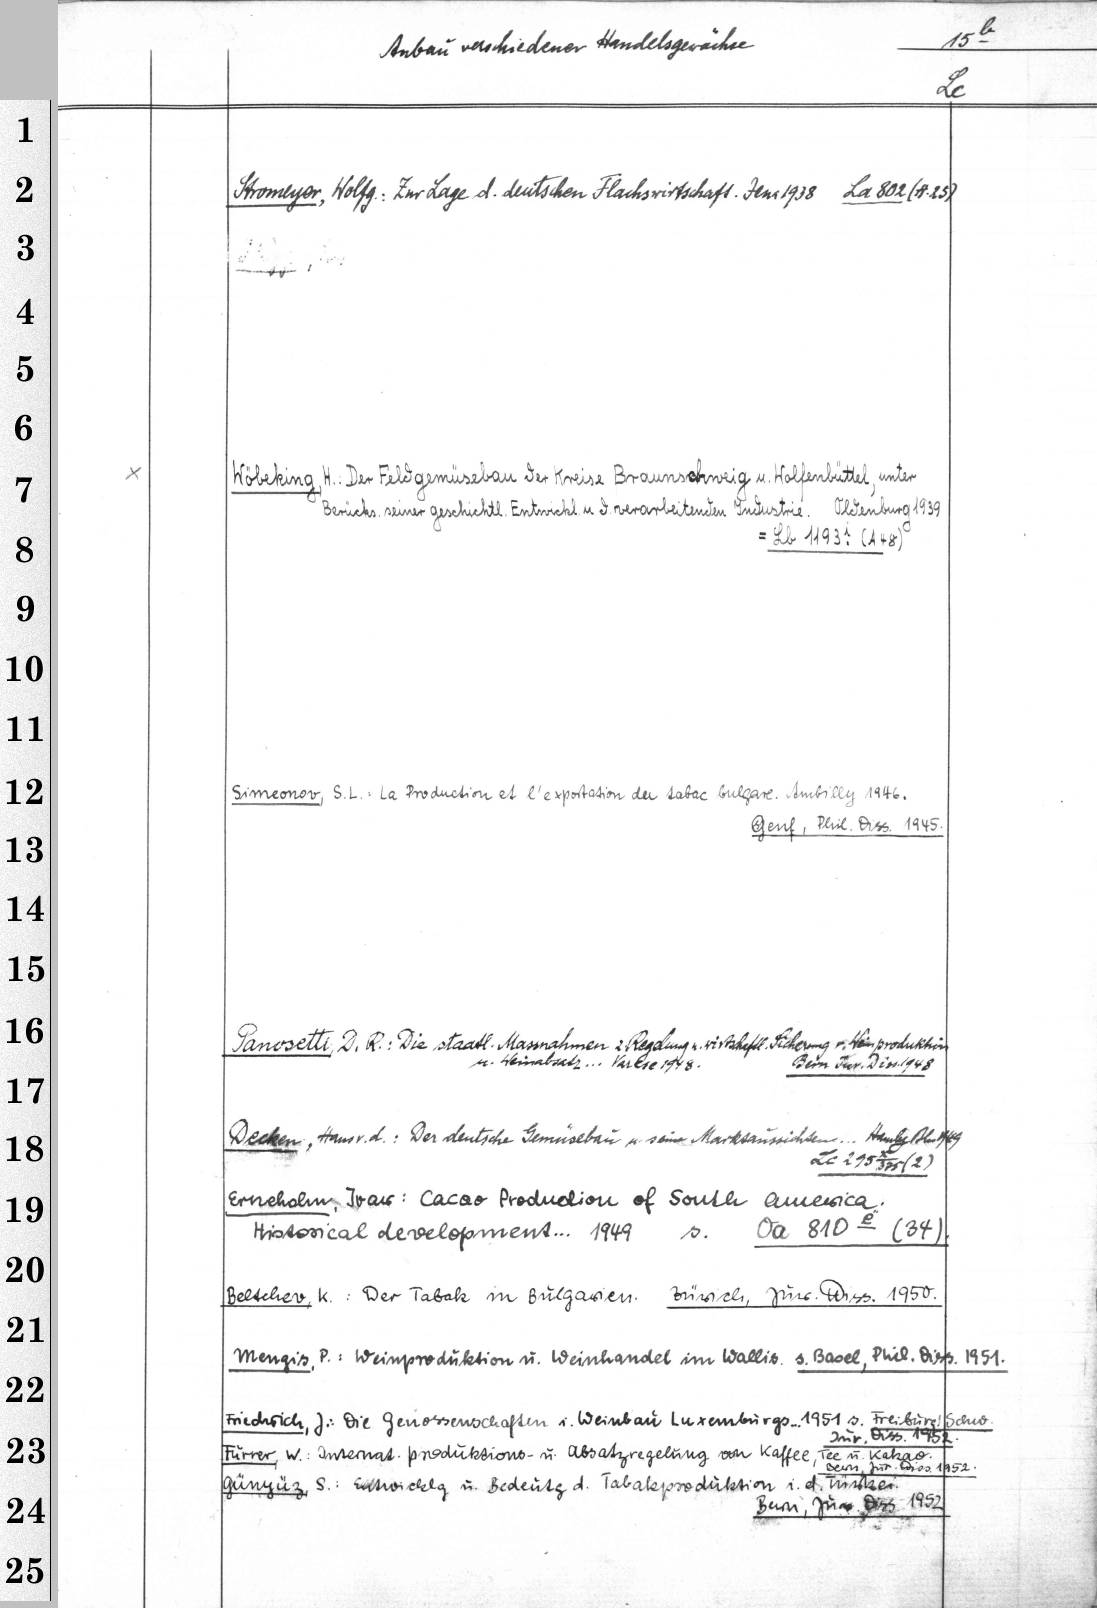 Anbau verschiedener Handelsgewächse
15 b
Lc
1
2
Stromeyer, Wolfg.: Zur Lage d. deutschen Flachswirtschaft. Jena 1938 La 802 (A. 25)
3
4
5
6
7
x
Wöbeking, H.: Der Feldgemüsebau der Kreise Braunschweig u. Wolfenbüttel, unter
Berücks. seiner geschichtl. Entwickl. u. d. verarbeitenden Industrie. Oldenburg 1939
8
= Lb 1193 i: (A 48)
9
10
11
12
Simeonov, S.L.: La Production et l'exportation du tabac bulgare. Ambilly 1946.
Genf, Phil. Diss. 1945.
13
14
15
16
Panosetti, D. R.: Die staatl. Massnahmen z. Regelung u. wirtschaftl. Sicherung v. Weinproduktion
u. Weinabsatz... Varese 1948. Bern Jur. Diss. 1948
17
18
Decken, Hans v. d.: Der deutsche Gemüsebau u. seine Marktaussichten... Hambg 1949
Lc 295 (2)
19
Erneholm, Ivar: Cacao Production of South America.
Historical development... 1949 s. Oa 810 e (34).
20
Beltschev, K.: Der Tabak in Bulgarien. Zürich, Jur. Diss. 1950.
21
Mengis, P.: Weinproduktion u. Weinhandel im Wallis. s. Basel, Phil. Diss. 1951.
22
Friedrich, J.: Die Genossenschaften i. Weinbau Luxemburgs... 1951 s. Freiburg/Schw.
Jur. Diss. 1952.
23
Furrer, W.: Internat. produktions- u. Absatzregelung von Kaffee, Tee u. Kakao.
Bern, Jur. Diss. 1952.
Günyüz, S.: Entwicklg u. Bedeutg d. Tabakproduktion i. d. Türkei.
24
Bern, Jur. Diss 1952
25